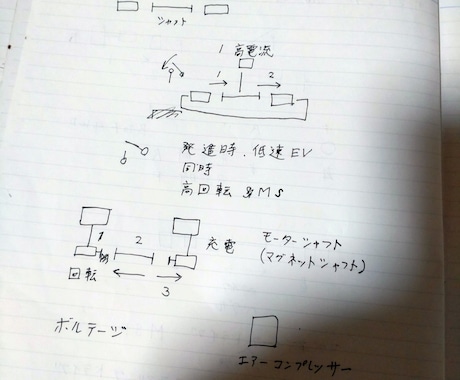 シャフト
1 高電流
1 2
発進時、低速EV
同時
高回転 &MS
1 2 充電 モーターシャフト
(マグネットシャフト)
回転 3
ボルテージ
エアーコンプレッサー